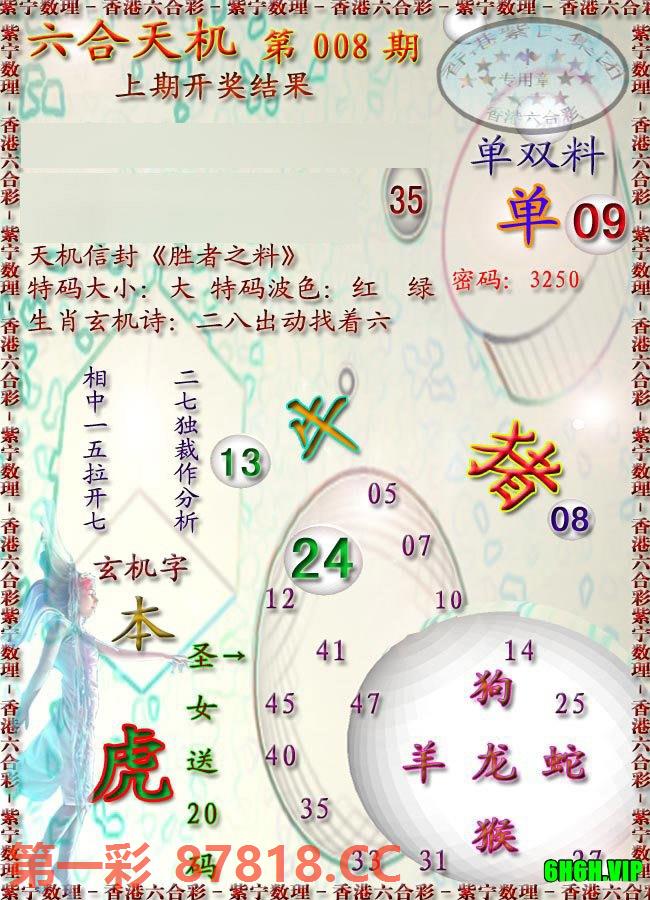 紫宁数理－香港六合彩－紫宁数理－香港六合彩－紫宁数理－香港六合彩－紫宁数理
六合天机 第 008 期
上期开奖结果
专用章
香港六合彩
单双料
单 09
35
天机信封《胜者之料》
特码大小：大 特码波色：红 绿
密码：3250
生肖玄机诗：二八出动找着六
相中一五拉开七
二七独裁作分析
13
猪
08
05
24
07
玄机字
12
10
本
圣女送20码
→
41
14
狗
45
47
25
虎
40
羊 龙 蛇
35
猴
33
31
27
第一彩 87818.CC
6H6H.VIP
紫宁数理－香港六合彩－紫宁数理－香港六合彩－紫宁数理－香港六合彩－紫宁数理